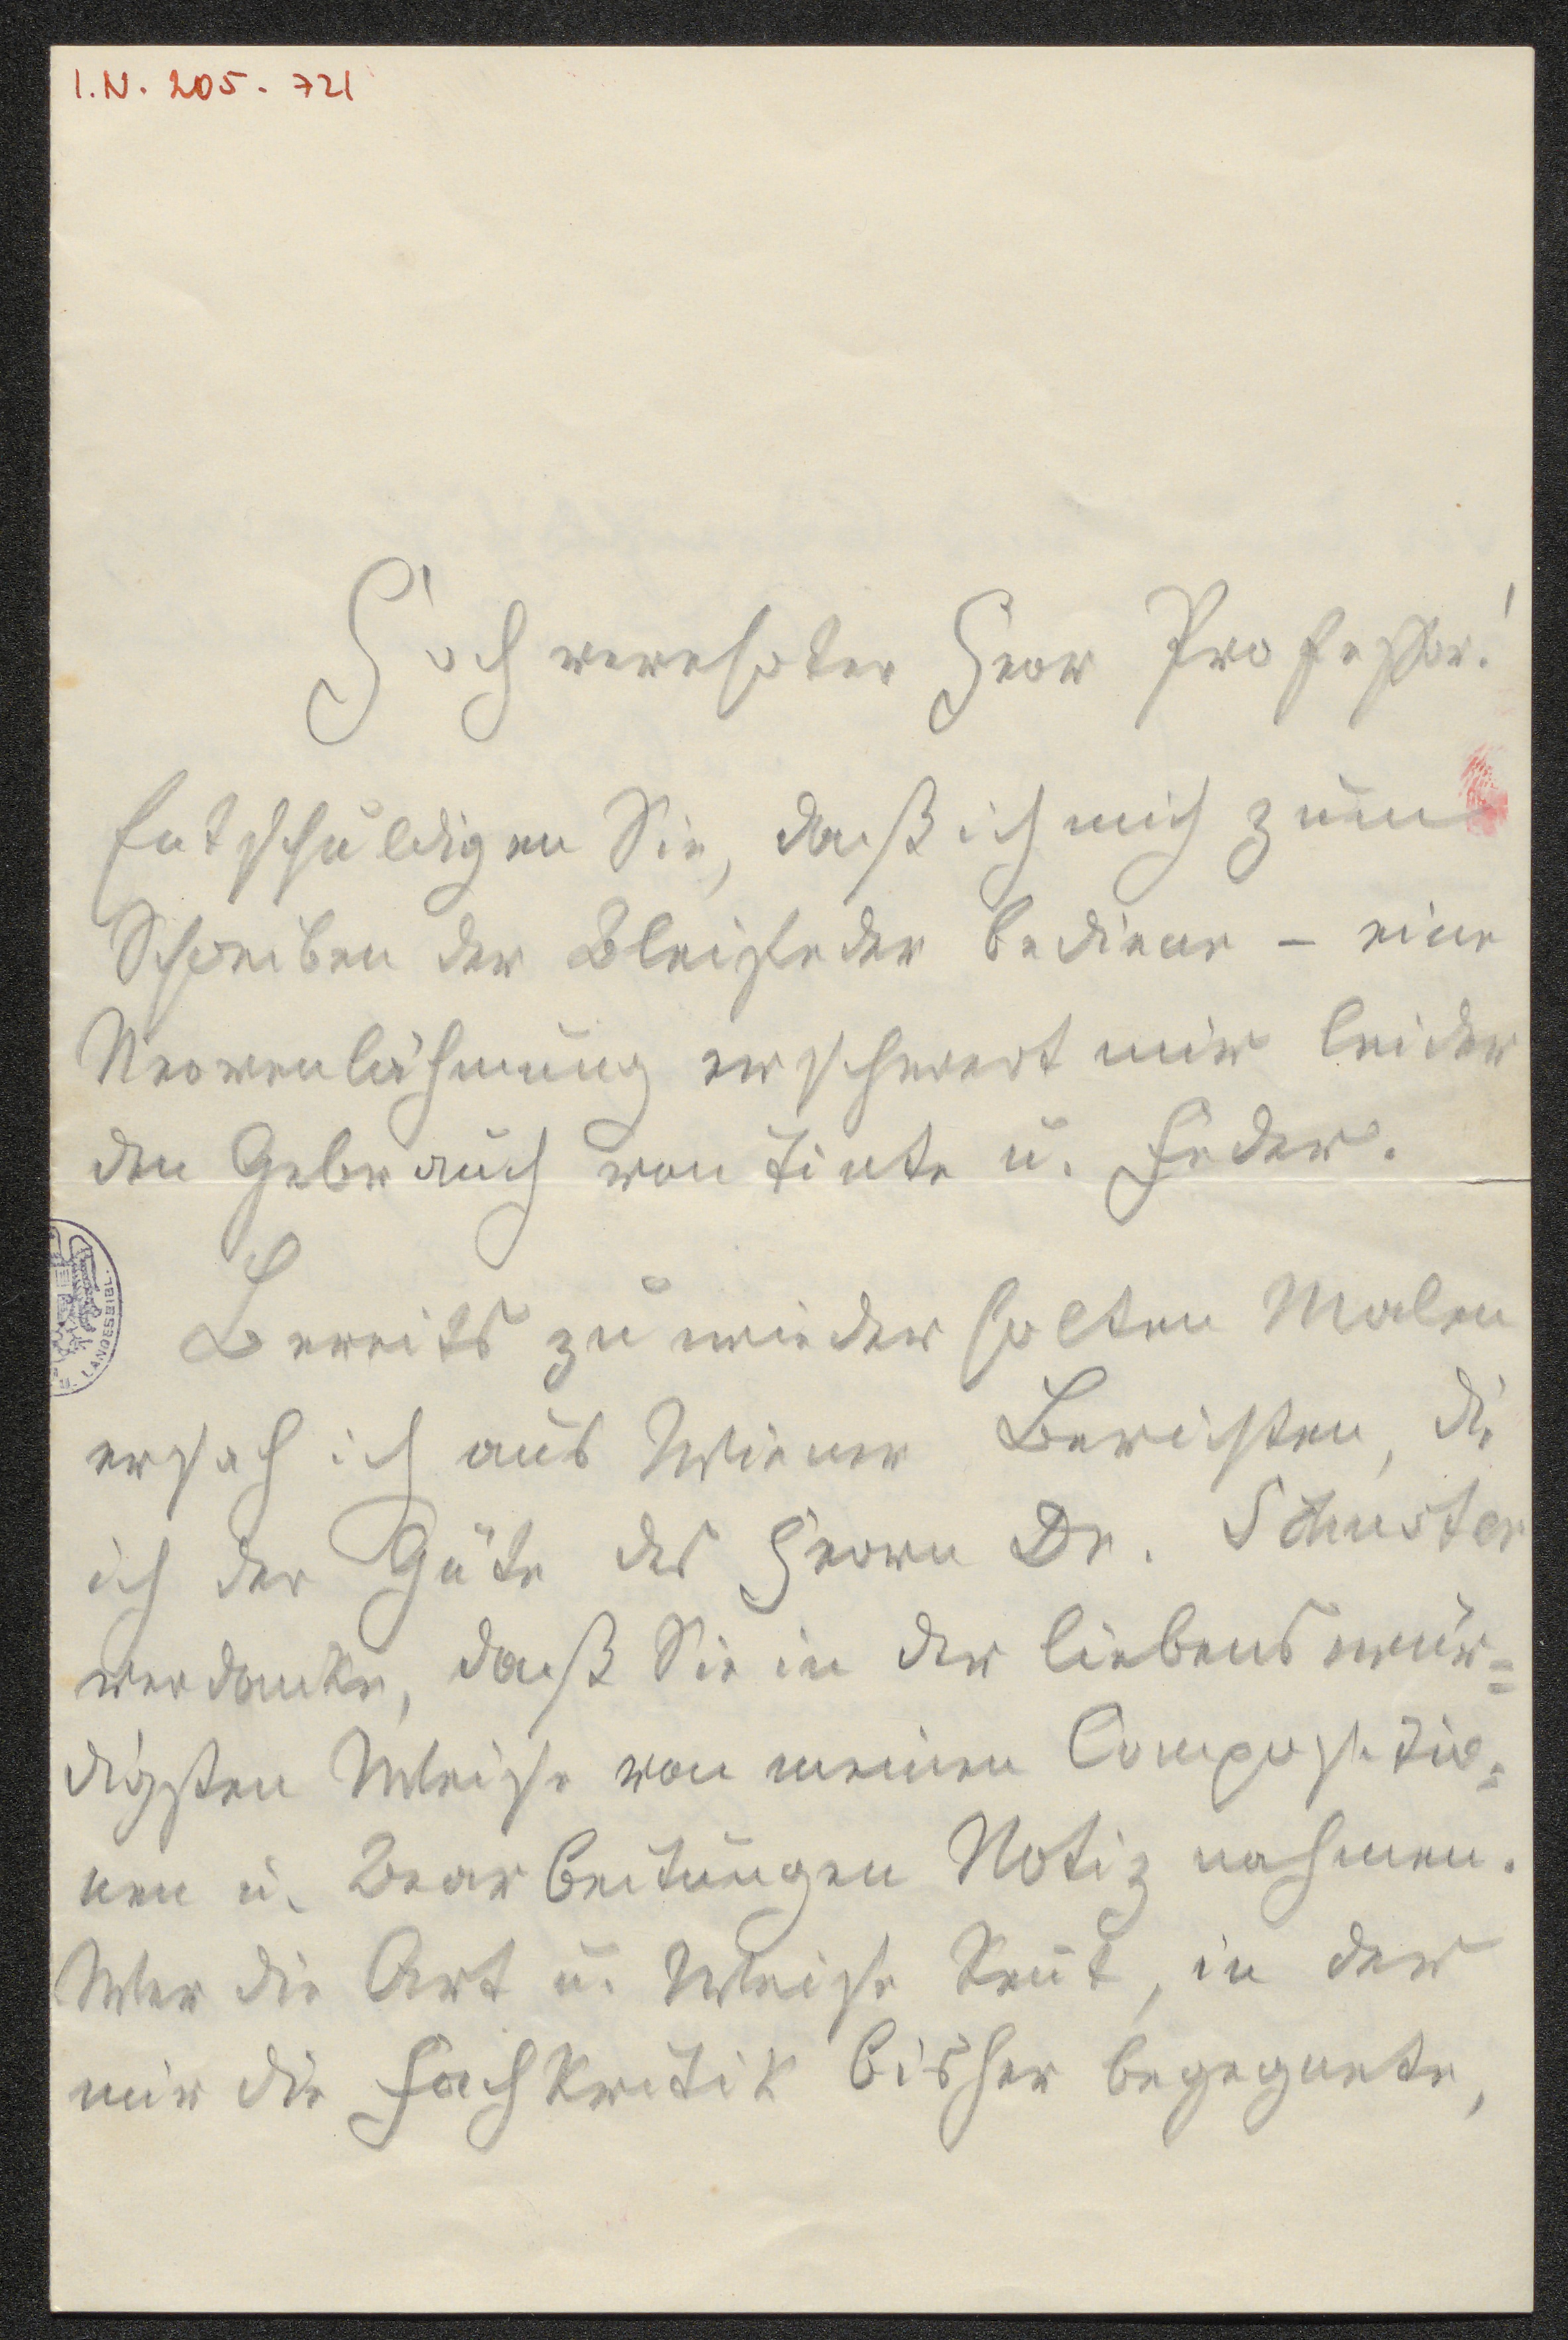 I.N. 205.721
Hochverehrter Herr Professor!
Entschuldigen Sie, daß ich mich zum
Schreiben der Bleifeder bediene – eine
Nervenlähmung erschwert mir leider
den Gebrauch von Tinte u. Feder.
Bereits zu wiederholten Malen
U. LANDESBIBL.
ersah ich aus Wiener Berichten, die
ich der Güte des Herrn Dr. Schuster
verdanke, daß Sie in der liebenswür=
digsten Weise von meinen Compositio=
nen u. Bearbeitungen Notiz nahmen.
Wer die Art u. Weise kennt, in der
mir die Fachkritik bisher begegnete,